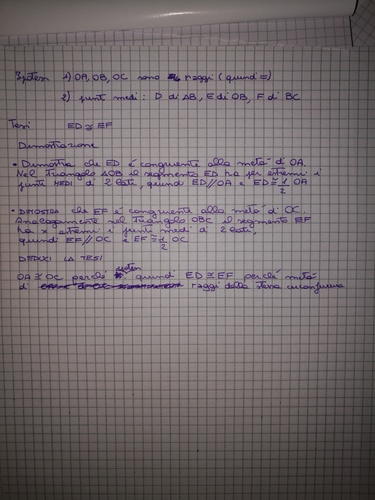 Ipotesi 1) OA, OB, OC sono raggi (quindi =)
2) punti medi: D di AB, E di OB, F di BC
Tesi ED ≅ EF
Dimostrazione
• Dimostra che ED é congruente alla metá di OA.
Nel triangolo AOB il segmento ED ha per estremi i
punti MEDI di 2 lati, quindi ED//OA e ED ≅ 1/2 OA
• DIMOSTRA che EF é congruente alla metá di OC.
Analogamente nel triangolo OBC il segmento EF
ha x estremi i punti medi di 2 lati,
quindi EF // OC e EF ≅ 1/2 OC
DEDUCI LA TESI
OA ≅ OC perché ipotesi quindi ED ≅ EF perché metá
di raggi della stessa circonferenza